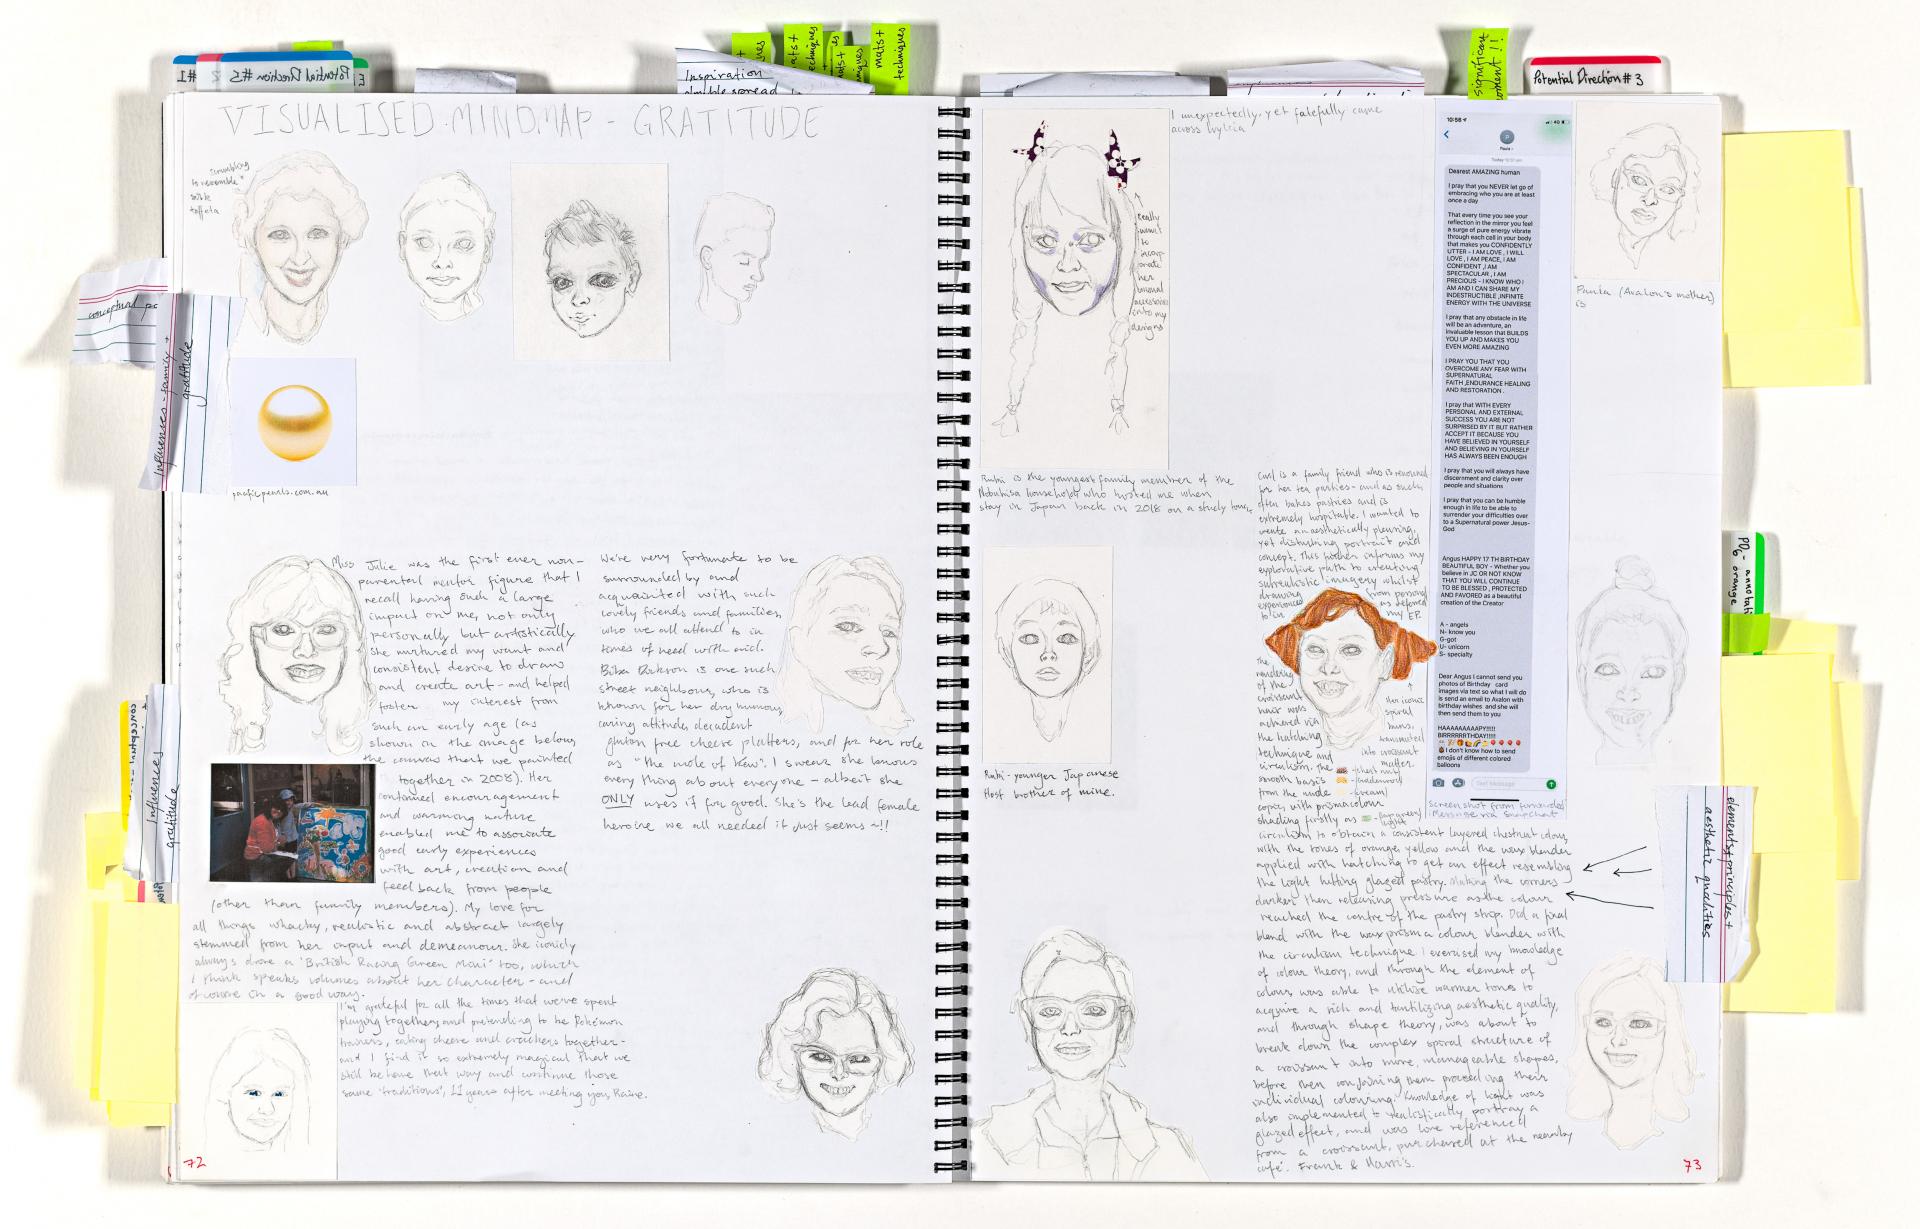 #1
Potential Direction #5
Inspiration
double spread
mats+
techniques
mats+
techniques
significant
moment!!
Potential Direction # 3
VISUALISED MINDMAP - GRATITUDE
to resemble
taffeta
conceptual
Influences - family +
gratitude
pacificpearls.com.au
Miss Julie was the first ever non-
parental mentor figure that I
recall having such a large
impact on me, not only
personally but artistically
She nurtured my want and
consistent desire to draw
and create art - and helped
foster my interest from
such an early age (as
shown in the image below,
the canvas that we painted
together in 2008). Her
continued encouragement
and warming nature
enabled me to associate
good early experiences
with art, creation and
feedback from people
(other than family members). My love for
all things whacky, realistic and abstract largely
stemmed from her input and demeanour. She iconicly
always drove a 'British Racing Green Mini' too, which
I think speaks volumes about her character - and
of course in a good way.
We're very fortunate to be
surrounded by and
acquainted with such
lovely friends and families,
who we all attend to in
times of need with aid.
is one such
street neighbour, who is
known for her dry humour,
caring attitude, decadent
gluten free cheese platters, and for her role
as "the mole of Kew". I swear she knows
everything about everyone - albeit she
ONLY uses it for good. She's the lead female
heroine we all needed it just seems ~!!
Influences
gratitude
I'm grateful for all the times that we've spent
playing together, and pretending to be Pokémon
trainers, eating cheese and crackers together -
and I find it so extremely magical that we
still behave that way and continue those
same 'traditions', 11 years after meeting you, Raine.
72
I unexpectedly, yet fatefully came
across
Really
want
to
incorp
orate
her
accessories
into my
designs
is the youngest family member of the
household, who hosted me when
stay in Japan back in 2018 on a study tour.
- younger Japanese
Host brother of mine.
is a family friend who is renowned
for her tea parties - and as such
often bakes pastries and is
extremely hospitable. I wanted to
create an aesthetically pleasing,
yet disturbing portrait and
concept. This further informs my
explorative path to creating
surrealistic imagery whilst
drawing from personal
experiences as
to in my EP.
the
rendering
of the
croissant
hair was
achieved via
the hatching
technique and
circulism. the
smooth basis
from the nude
copic, with prismacolour
shading firstly as
circulism to obtain a consistent layered chestnut colour,
with the tones of orange, yellow and the wax blender
applied with hatching to get an effect resembling
the light hitting glazed pastry. Making the corners
darker then releasing pressure as the colour
reached the centre of the pastry strip. Did a final
blend with the wax prisma colour blender with
the circulism technique. I exercised my knowledge
of colour theory, and through the element of
colour, was able to utilise warmer tones to
acquire a rich and tantilizing aesthetic quality,
and through shape theory, was about to
break down the complex spiral structure of
a croissant into more, manageable shapes,
before then conjoining them proceeding their
individual colouring. Knowledge of light was
also implemented to realistically, portray a
glazed effect, and was love referenced
from a croissant, purchased at the nearby
cafe. Frank & Harri's.
Her iconic
spiral
buns,
transmuted
into croissant
matter.
10:58
4G
P
Paula
Today 10:51 am
Dearest AMAZING human
I pray that you NEVER let go of
embracing who you are at least
once a day
That every time you see your
reflection in the mirror you feel
a surge of pure energy vibrate
through each cell in your body
that makes you CONFIDENTLY
UTTER - I AM LOVE , I WILL
LOVE , I AM PEACE, I AM
CONFIDENT ,I AM
SPECTACULAR , I AM
PRECIOUS - I KNOW WHO I
AM AND I CAN SHARE MY
INDESTRUCTIBLE ,INFINITE
ENERGY WITH THE UNIVERSE
I pray that any obstacle in life
will be an adventure, an
invaluable lesson that BUILDS
YOU UP AND MAKES YOU
EVEN MORE AMAZING
I PRAY YOU THAT YOU
OVERCOME ANY FEAR WITH
SUPERNATURAL
FAITH ,ENDURANCE HEALING
AND RESTORATION .
I pray that WITH EVERY
PERSONAL AND EXTERNAL
SUCCESS YOU ARE NOT
SURPRISED BY IT BUT RATHER
ACCEPT IT BECAUSE YOU
HAVE BELIEVED IN YOURSELF
AND BELIEVING IN YOURSELF
HAS ALWAYS BEEN ENOUGH
I pray that you will always have
discernment and clarity over
people and situations
I pray that you can be humble
enough in life to be able to
surrender your difficulties over
to a Supernatural power Jesus-
God
Angus HAPPY 17 TH BIRTHDAY
BEAUTIFUL BOY - Whether you
believe in JC OR NOT KNOW
THAT YOU WILL CONTINUE
TO BE BLESSED , PROTECTED
AND FAVORED as a beautiful
creation of the Creator
A - angels
N- know you
G-got
U- unicorn
S- specialty
Dear Angus I cannot send you
photos of Birthday card
images via text so what I will do
is send an email to Avalon with
birthday wishes and she will
then send them to you
HAAAAAAAAAPY!!!!!
BIRRRRRTHDAY!!!!!
I don't know how to send
emojis of different colored
balloons
Text Message
Screenshot from forwarded
message via snapchat
(Avalon's mother)
is
orange
elements+principles+
aesthetic qualities
73